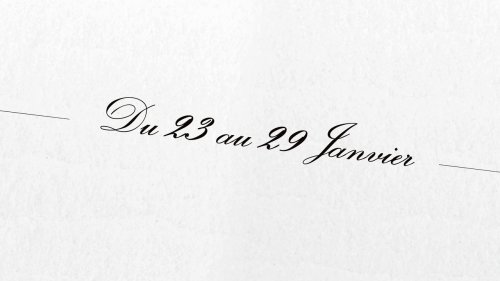 Du 23 au 29 Janvier